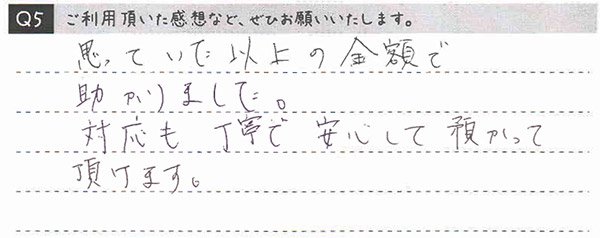 Q5 ご利用頂いた感想など、ぜひお願いいたします。
思っていた以上の金額で
助かりました。
対応も丁寧で安心して預かって
頂けます。